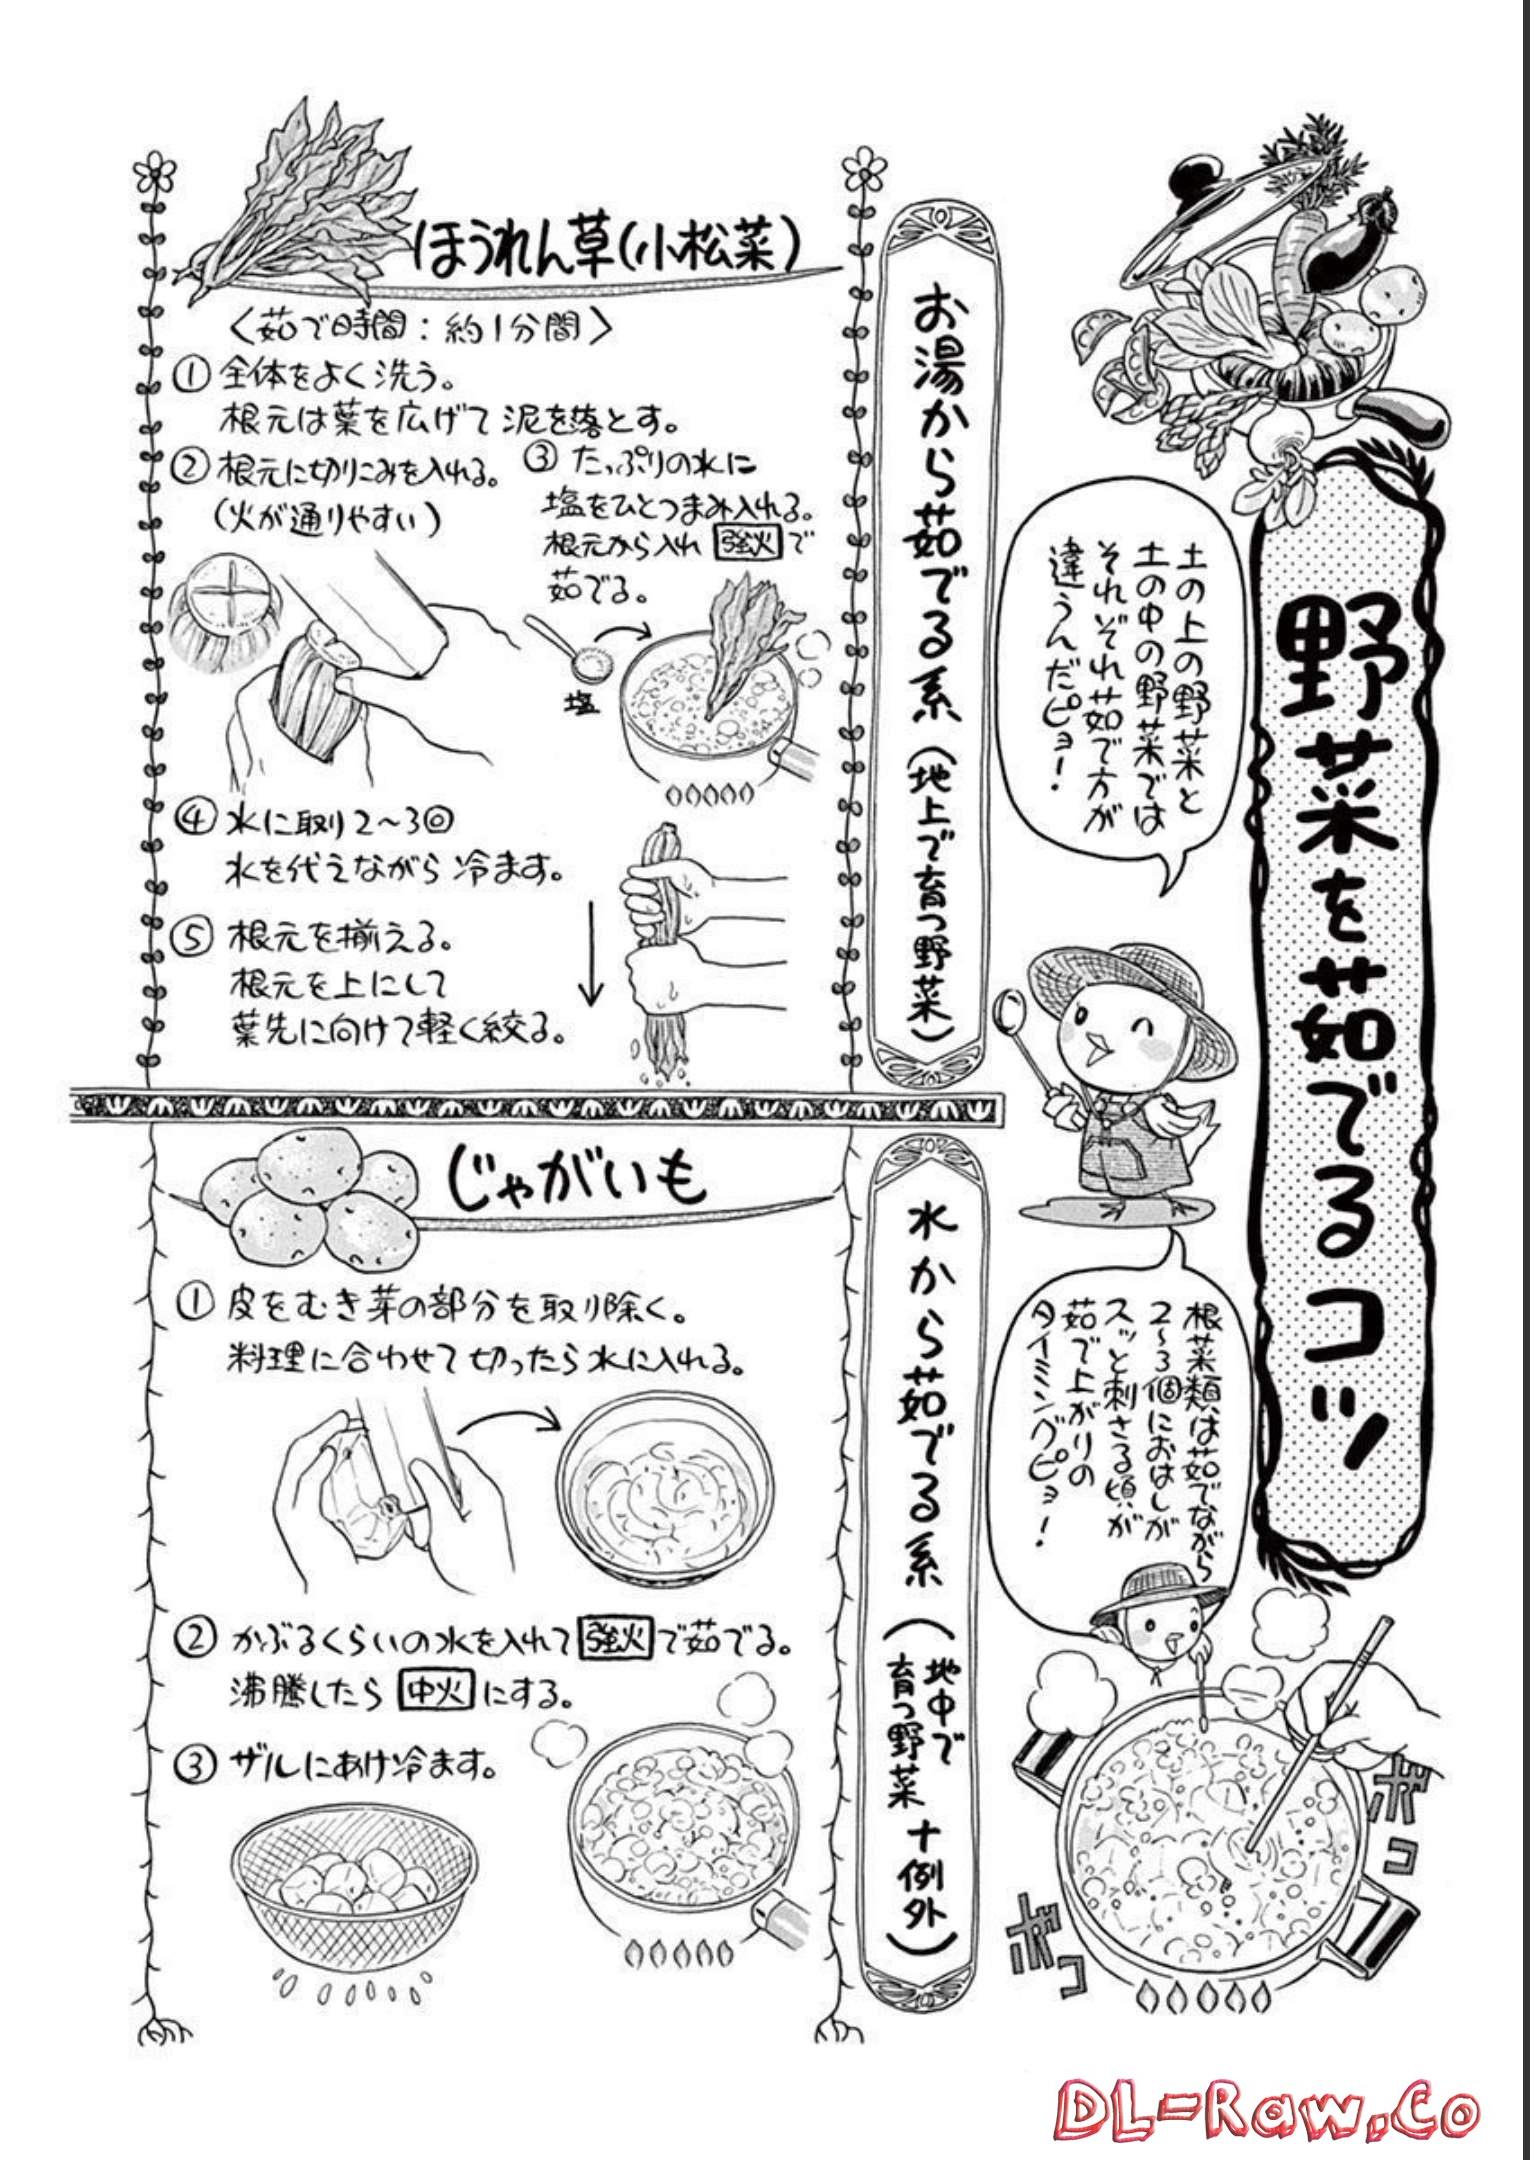 野菜を茹でるコツ
土の上の野菜と
土の中の野菜では
それぞれ茹で方が
違うんだピョ！
お湯から茹でる系（地上で育つ野菜）
ほうれん草(小松菜)
〈茹で時間：約1分間〉
①全体をよく洗う。
根元は葉を広げて泥を落とす。
②根元に切りこみを入れる。
(火が通りやすい)
③たっぷりの水に
塩をひとつまみ入れる。
根元から入れ強火で
茹でる。
塩
④水に取り2〜3回
水を代えながら冷ます。
⑤根元を揃える。
根元を上にして
葉先に向けて軽く絞る。
根菜類は茹でながら
2〜3個におはしが
スッと刺さる頃が
茹で上がりの
タイミングピョ！
ポコ
ポコ
水から茹でる系（地中で
育つ野菜＋例外）
じゃがいも
①皮をむき芽の部分を取り除く。
料理に合わせて切ったら水に入れる。
②かぶるくらいの水を入れて強火で茹でる。
沸騰したら中火にする。
③ザルにあけ冷ます。
DL-Raw.Co